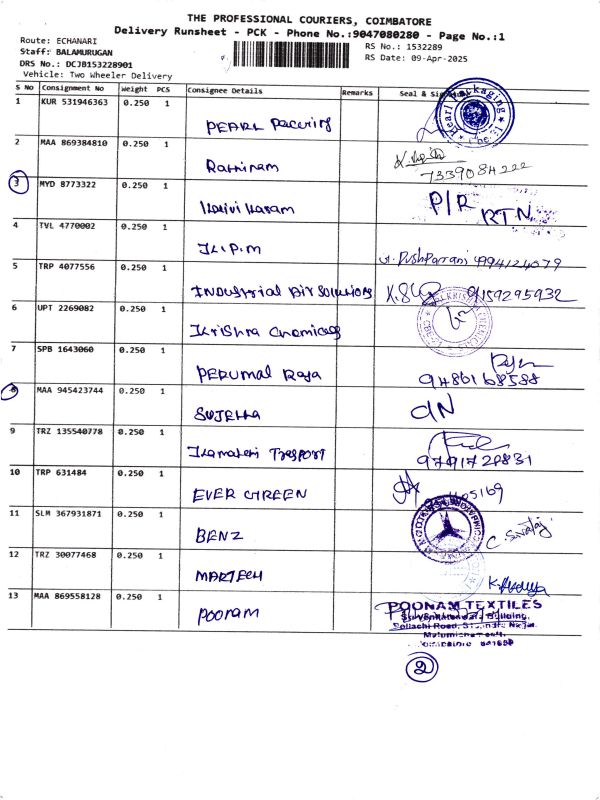 THE PROFESSIONAL COURIERS, COIMBATORE
Delivery Runsheet - PCK - Phone No.:9047080280 - Page No.:1
Route: ECHANARI
RS No.: 1532289
Staff: BALAMURUGAN
RS Date: 09-Apr-2025
DRS No.: DCJB153228901
Vehicle: Two Wheeler Delivery
S No Consignment No Weight PCS Consignee Details Remarks Seal &
1 KUR 531946363 0.250 1 PEARL Pearl Packaging
2 MAA 869384810 0.250 1 Rathinam 7339084222
3 MYD 8773322 0.250 1 P/R RTN
4 TVL 4770002 0.250 1 4994124079
5 TRP 4077556 0.250 1 INDUSTRIAL AIR SOLUTIONS 9159295932
6 UPT 2269082 0.250 1 Krishna Chemicals
7 SPB 1643060 0.250 1 PERUMAL Raja 9486168588
8 MAA 945423744 0.250 1 DN
9 TRZ 135540778 0.250 1 9791722831
10 TRP 631484 0.250 1 EVER GREEN
11 SLM 367931871 0.250 1 BENZ
12 TRZ 30077468 0.250 1 MARTECH
13 MAA 869558128 0.250 1 POONAM
POONAM TEXTILES
2